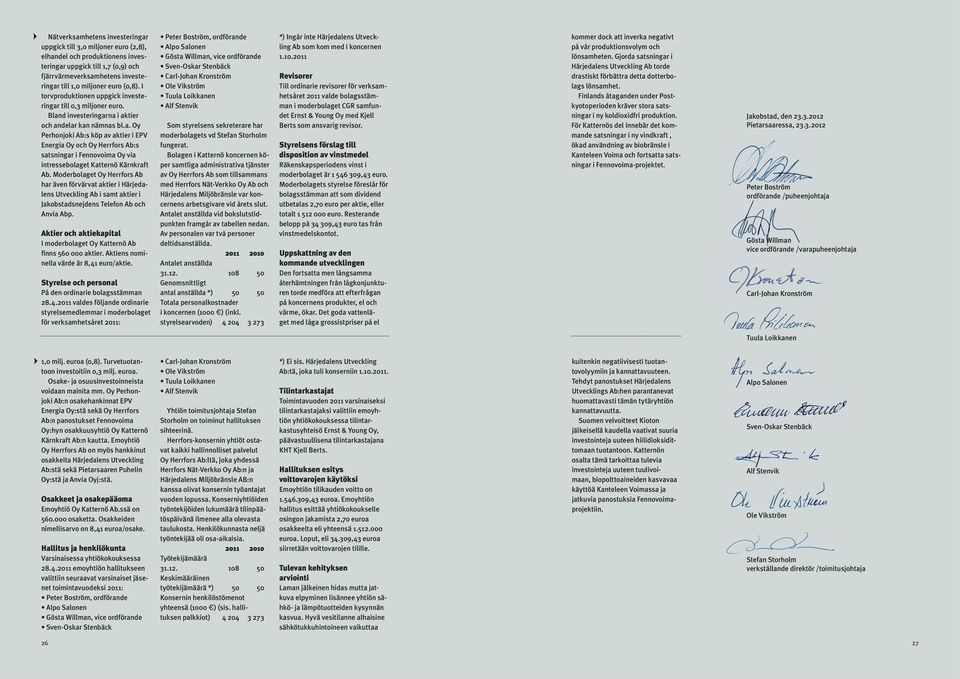 Nätverksamhetens investeringar
uppgick till 3,0 miljoner euro (2,8),
elhandel och produktionens inves-
teringar uppgick till 1,7 (0,9) och
fjärrvärmeverksamhetens investe-
ringar till 1,0 miljoner euro (0,8). I
torvproduktionen uppgick investe-
ringar till 0,3 miljoner euro.
Bland investeringarna i aktier
och andelar kan nämnas bl.a. Oy
Perhonjoki Ab:s köp av aktier i EPV
Energia Oy och Oy Herrfors Ab:s
satsningar i Fennovoima Oy via
intressebolaget Katternö Kärnkraft
Ab. Moderbolaget Oy Herrfors Ab
har även förvärvat aktier i Härjeda-
lens Utveckling Ab i samt aktier i
Jakobstadsnejdens Telefon Ab och
Anvia Abp.
Aktier och aktiekapital
I moderbolaget Oy Katternö Ab
finns 560 000 aktier. Aktiens nomi-
nella värde är 8,41 euro/aktie.
Styrelse och personal
På den ordinarie bolagsstämman
28.4.2011 valdes följande ordinarie
styrelsemedlemmar i moderbolaget
för verksamhetsåret 2011:
• Peter Boström, ordförande
• Alpo Salonen
• Gösta Willman, vice ordförande
• Sven-Oskar Stenbäck
• Carl-Johan Kronström
• Ole Vikström
• Tuula Loikkanen
• Alf Stenvik
Som styrelsens sekreterare har
moderbolagets vd Stefan Storholm
fungerat.
Bolagen i Katternö koncernen kö-
per samtliga administrativa tjänster
av Oy Herrfors Ab som tillsammans
med Herrfors Nät-Verkko Oy Ab och
Härjedalens Miljöbränsle var kon-
cernens arbetsgivare vid årets slut.
Antalet anställda vid bokslutstid-
punkten framgår av tabellen nedan.
Av personalen var två personer
deltidsanställda.
2011 2010
Antalet anställda
31.12. 108 50
Genomsnittligt
antal anställda *) 50 50
Totala personalkostnader
i koncernen (1000 €) (inkl.
styrelsearvoden) 4 204 3 273
*) Ingår inte Härjedalens Utveck-
ling Ab som kom med i koncernen
1.10.2011
Revisorer
Till ordinarie revisorer för verksam-
hetsåret 2011 valde bolagsstäm-
man i moderbolaget CGR samfun-
det Ernst & Young Oy med Kjell
Berts som ansvarig revisor.
Styrelsens förslag till
disposition av vinstmedel
Räkenskapsperiodens vinst i
moderbolaget är 1 546 309,43 euro.
Moderbolagets styrelse föreslår för
bolagsstämman att som dividend
utbetalas 2,70 euro per aktie, eller
totalt 1 512 000 euro. Resterande
belopp på 34 309,43 euro tas från
vinstmedelskontot.
Uppskattning av den
kommande utvecklingen
Den fortsatta men långsamma
återhämtningen från lågkonjunktu-
ren torde medföra att efterfrågan
på koncernens produkter, el och
värme, ökar. Det goda vattenlä-
get med låga grossistpriser på el
kommer dock att inverka negativt
på vår produktionsvolym och
lönsamheten. Gjorda satsningar i
Härjedalens Utveckling Ab torde
drastiskt förbättra detta dotterbo-
lags lönsamhet.
Finlands åtaganden under Post-
kyotoperioden kräver stora sats-
ningar i ny koldioxidfri produktion.
För Katternös del innebär det kom-
mande satsningar i ny vindkraft ,
ökad användning av biobränsle i
Kanteleen Voima och fortsatta sats-
ningar i Fennovoima-projektet.
Jakobstad, den 23.3.2012
Pietarsaaressa, 23.3.2012
Peter Boström
ordförande /puheenjohtaja
Gösta Willman
vice ordförande /varapuheenjohtaja
Carl-Johan Kronström
Tuula Loikkanen
1,0 milj. euroa (0,8). Turvetuotan-
toon investoitiin 0,3 milj. euroa.
Osake- ja osuusinvestoinneista
voidaan mainita mm. Oy Perhon-
joki Ab:n osakehankinnat EPV
Energia Oy:stä sekä Oy Herrfors
Ab:n panostukset Fennovoima
Oy:hyn osakkuusyhtiö Oy Katternö
Kärnkraft Ab:n kautta. Emoyhtiö
Oy Herrfors Ab on myös hankkinut
osakkeita Härjedalens Utveckling
Ab:stä sekä Pietarsaaren Puhelin
Oy:stä ja Anvia Oyj:stä.
Osakkeet ja osakepääoma
Emoyhtiö Oy Katternö Ab.ssä on
560.000 osaketta. Osakkeiden
nimellisarvo on 8,41 euroa/osake.
Hallitus ja henkilökunta
Varsinaisessa yhtiökokouksessa
28.4.2011 emoyhtiön hallitukseen
valittiin seuraavat varsinaiset jäse-
net toimintavuodeksi 2011:
• Peter Boström, ordförande
• Alpo Salonen
• Gösta Willman, vice ordförande
• Sven-Oskar Stenbäck
• Carl-Johan Kronström
• Ole Vikström
• Tuula Loikkanen
• Alf Stenvik
Yhtiön toimitusjohtaja Stefan
Storholm on toiminut hallituksen
sihteerinä.
Herrfors-konsernin yhtiöt osta-
vat kaikki hallinnolliset palvelut
Oy Herrfors Ab:ltä, joka yhdessä
Herrfors Nät-Verkko Oy Ab:n ja
Härjedalens Miljöbränsle AB:n
kanssa olivat konsernin työantajat
vuoden lopussa. Konserniyhtiöiden
työntekijöiden lukumäärä tilinpää-
töspäivänä ilmenee alla olevasta
taulukosta. Henkilökunnasta neljä
työntekijää oli osa-aikaisia.
2011 2010
Työtekijämäärä
31.12. 108 50
Keskimääräinen
työtekijämäärä *) 50 50
Konsernin henkilöstömenot
yhteensä (1000 €) (sis. halli-
tuksen palkkiot) 4 204 3 273
*) Ei sis. Härjedalens Utveckling
Ab:tä, joka tuli konserniin 1.10.2011.
Tilintarkastajat
Toimintavuoden 2011 varsinaiseksi
tilintarkastajaksi valittiin emoyh-
tiön yhtiökokouksessa tilintar-
kastusyhteisö Ernst & Young Oy,
päävastuullisena tilintarkastajana
KHT Kjell Berts.
Hallituksen esitys
voittovarojen käytöksi
Emoyhtiön tilikauden voitto on
1.546.309,43 euroa. Emoyhtiön
hallitus esittää yhtiökokoukselle
osingon jakamista 2,70 euroa
osakkeelta eli yhteensä 1.512.000
euroa. Loput, eli 34.309,43 euroa
siirretään voittovarojen tilille.
Tulevan kehityksen
arviointi
Laman jälkeinen hidas mutta jat-
kuva elpyminen lisännee yhtiön säh-
kö- ja lämpötuotteiden kysynnän
kasvua. Hyvä vesitilanne alhaisine
sähkötukkuhintoineen vaikuttaa
kuitenkin negatiivisesti tuotan-
tovolyymiin ja kannattavuuteen.
Tehdyt panostukset Härjedalens
Utvecklings Ab:hen parantanevat
huomattavasti tämän tytäryhtiön
kannattavuutta.
Suomen velvoitteet Kioton
jälkeisellä kaudella vaativat suuria
investointeja uuteen hiilidioksidit-
tomaan tuotantoon. Katternön
osalta tämä tarkoittaa tulevia
investointeja uuteen tuulivoi-
maan, biopolttoaineiden kasvavaa
käyttöä Kanteleen Voimassa ja
jatkuvia panostuksia Fennovoima-
projektiin.
Alpo Salonen
Sven-Oskar Stenbäck
Alf Stenvik
Ole Vikström
Stefan Storholm
verkställande direktör /toimitusjohtaja
26
27